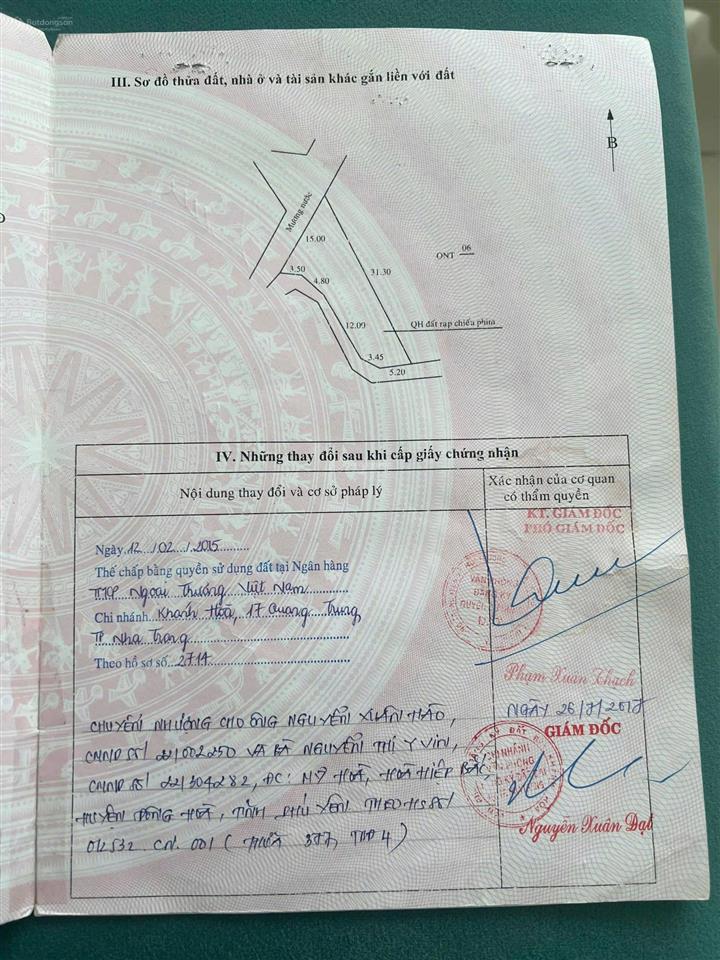 Batdongsan
III. Sơ đồ thửa đất, nhà ở và tài sản khác gắn liền với đất
B
Mương nước
15.00
06
ONT
3.50
4.80
31.30
12.00
QH đất rạp chiếu phim
3.45
5.20
IV. Những thay đổi sau khi cấp giấy chứng nhận
Nội dung thay đổi và cơ sở pháp lý
Xác nhận của cơ quan
có thẩm quyền
KT. GIÁM ĐỐC
PHÓ GIÁM ĐỐC
Ngày 12./02./.2015
Thế chấp bằng quyền sử dụng đất tại Ngân hàng
TMCP Ngoại Thương Việt Nam
Chi nhánh Khánh Hoà, 17 Quang Trung
TP Nha Trang
Theo hồ sơ số 2714
Phạm Xuân Thạch
CHUYỂN NHƯỢNG CHO ÔNG NGUYỄN XUÂN HÀO,
CMND SỐ 221002250 VÀ BÀ NGUYỄN THỊ Y VIN,
CMND SỐ 221304282, ĐC: MỸ HOÀ, HOÀ HIỆP BẮC,
HUYỆN ĐÔNG HOÀ, TỈNH PHÚ YÊN THEO HS SỐ
012532. CN. 001 (THỬA 377, TBĐ 4)
NGÀY 26/7/2017
GIÁM ĐỐC
Nguyễn Xuân Đạt